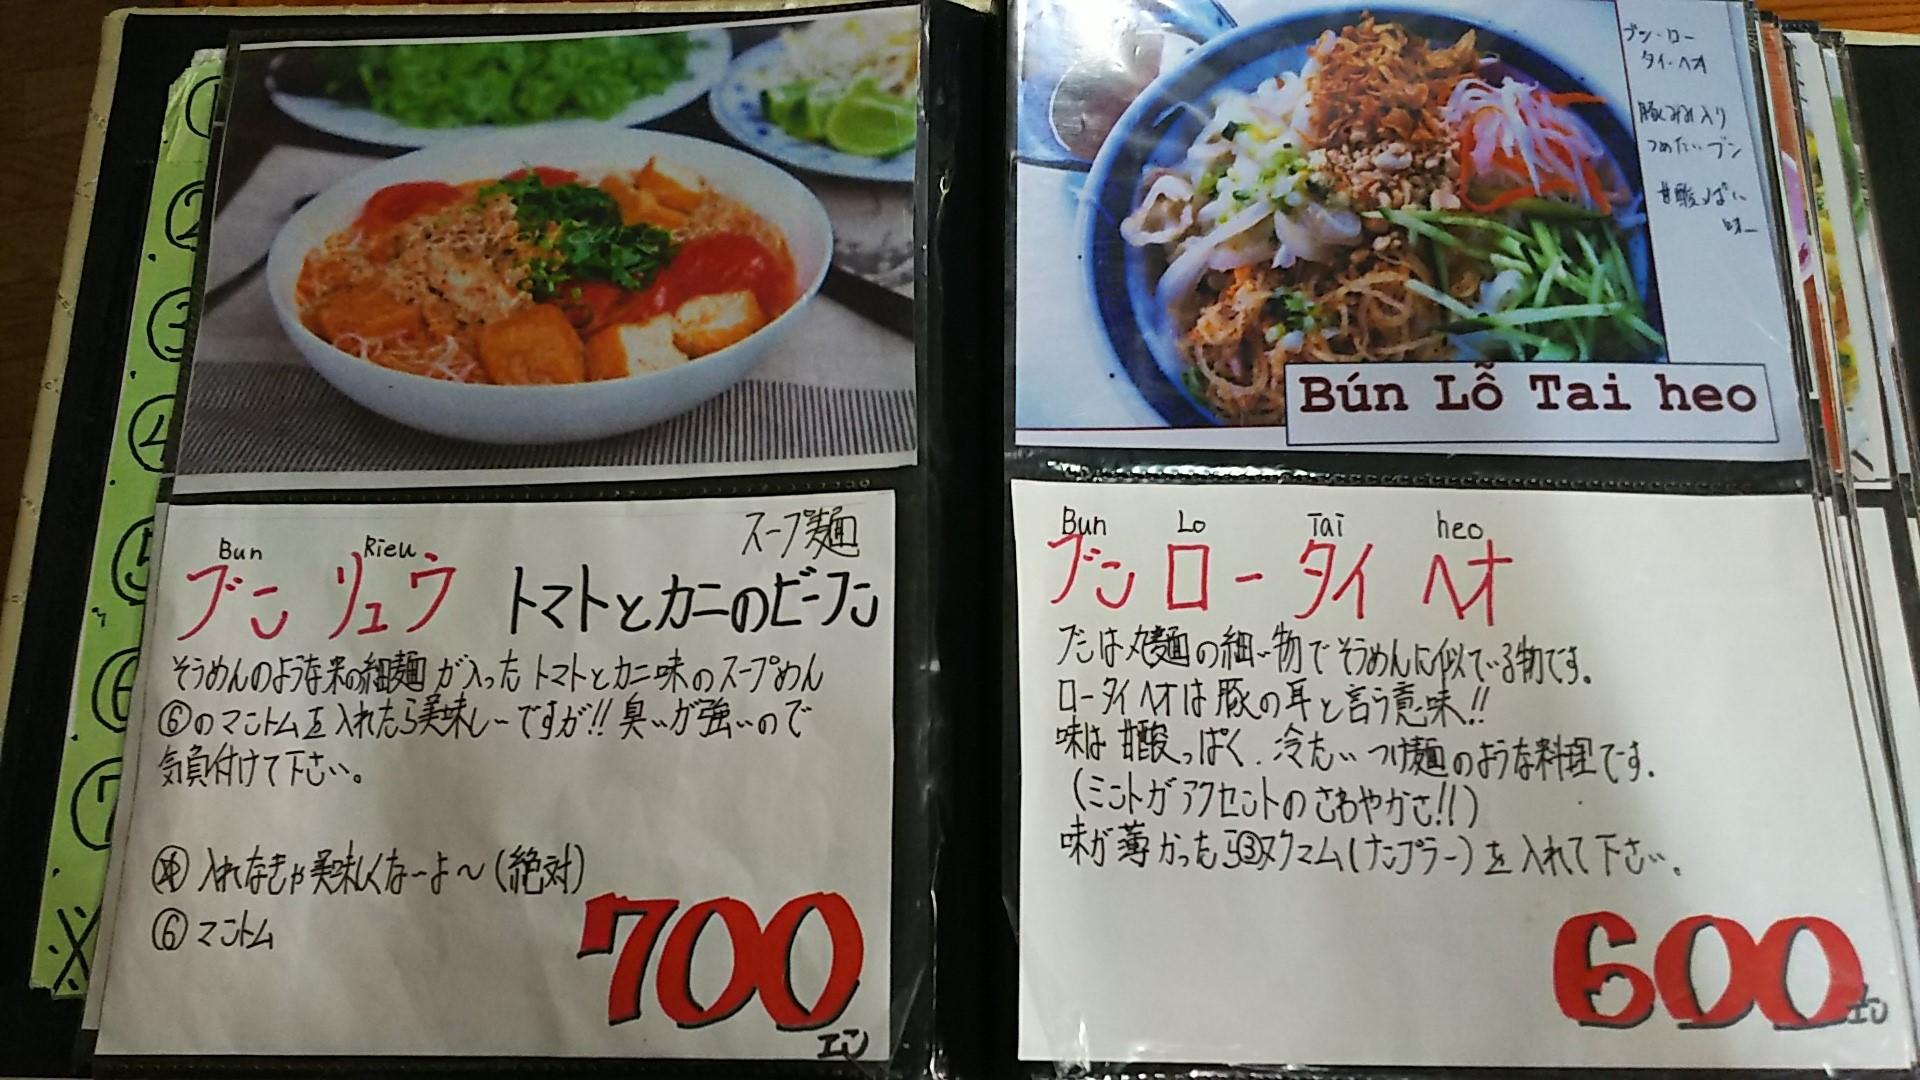 ①
②
③
④
⑤
⑥
⑦
※
スープ麺
Bun Rieu
ブン リュウ トマトとカニのビーフン
そうめんのような米の細麺が入ったトマトとカニ味のスープめん
⑥のマントムを入れたら美味しーですが!!臭いが強いので
気負付けて下さい。
入れなきゃ美味しくなーよ～(絶対)
⑥マントム
700
エン
ブン・ロー
タイ・ヘオ
豚みみ入り
つめたいブン
甘酸っぱい
味
Bún Lỗ Tai heo
Bun Lo Tai heo
ブン ロー タイ ヘオ
ブンは丸麺の細い物でそうめんに似ている物です。
ロータイヘオは豚の耳と言う意味!!
味は甘酸っぱく、冷たいつけ麺のような料理です.
(ミントがアクセントのさわやかさ!!)
味が薄かったら③ヌクマム(ナンプラー)を入れて下さい。
600
エン